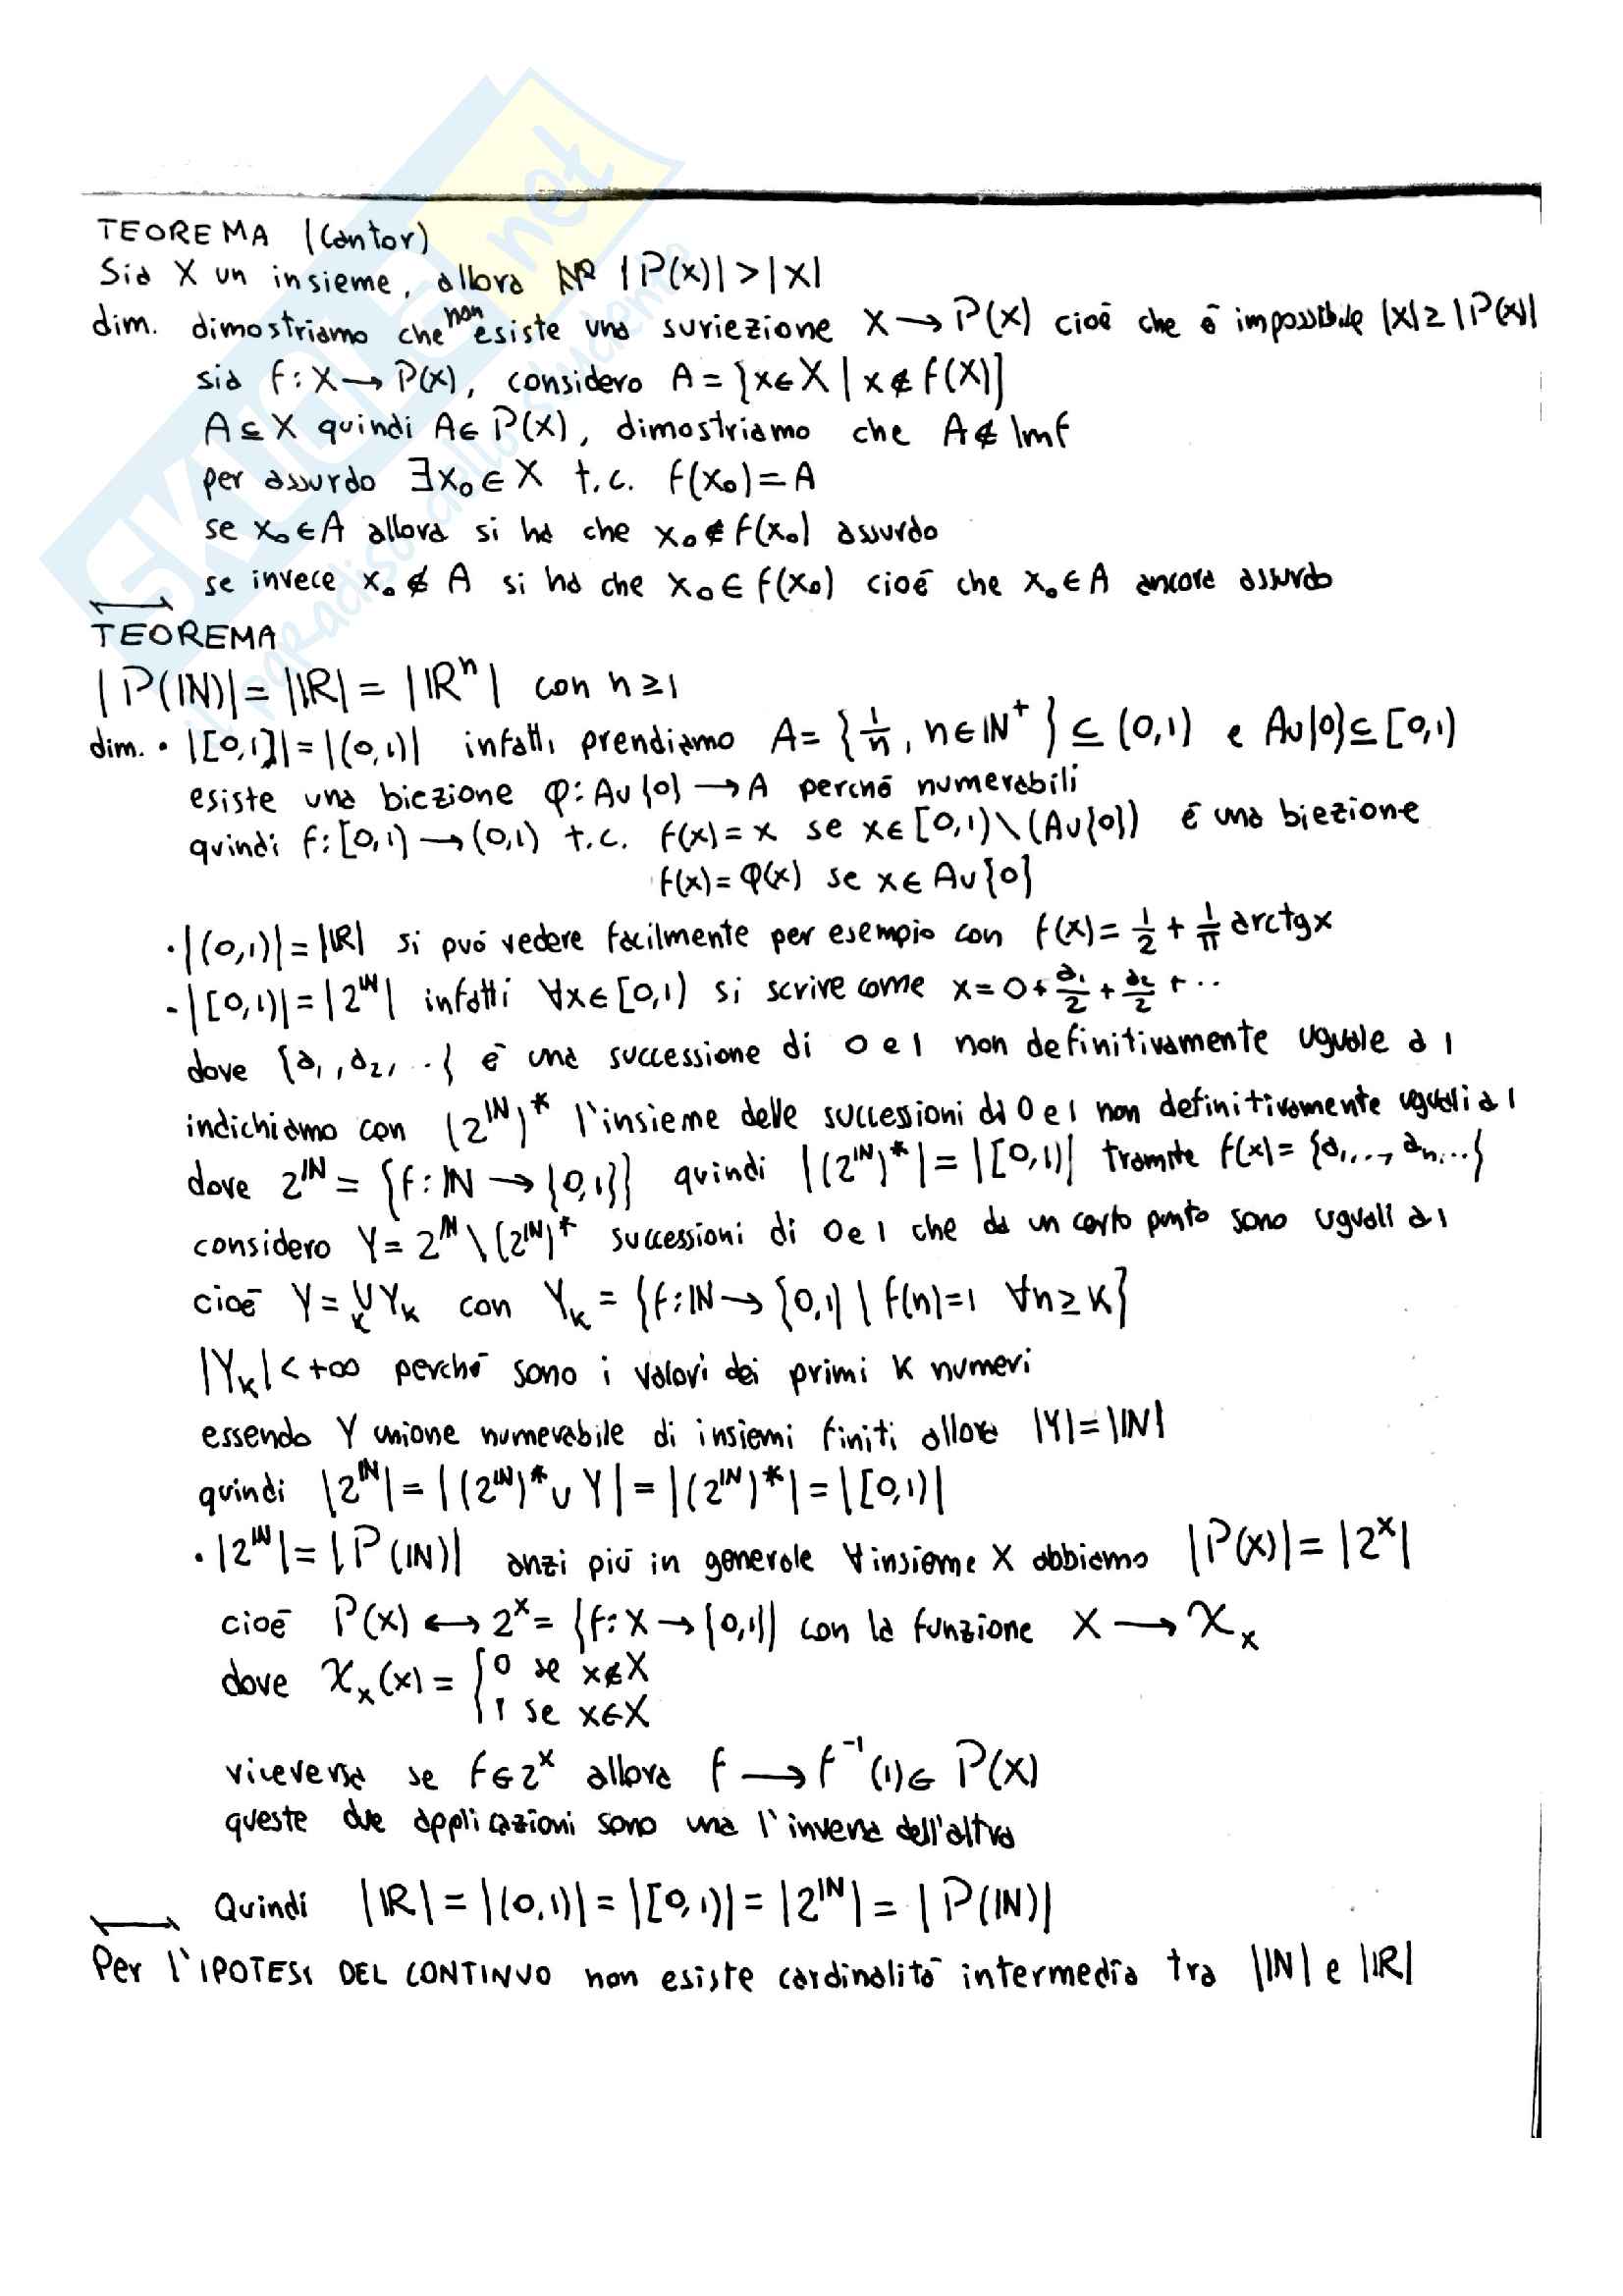 SKUOLA.net
il paradiso dello studente
TEOREMA (Cantor)
Sia X un insieme, allora |P(X)|>|X|
dim. dimostriamo che non esiste una suriezione X→P(X) cioè che è impossibile |X|≥|P(X)|
sia f:X→P(X), considero A={x∈X | x∉f(X)}
A⊆X quindi A∈P(X), dimostriamo che A∉Imf
per assurdo ∃x₀∈X t.c. f(x₀)=A
se x₀∈A allora si ha che x₀∉f(x₀) assurdo
se invece x₀∉A si ha che x₀∈f(x₀) cioè che x₀∈A ancora assurdo
TEOREMA
|P(ℕ)|=|ℝ|=|ℝⁿ| con n≥1
dim. • |[0,1)|=|(0,1)| infatti prendiamo A={1/n, n∈ℕ⁺}⊆(0,1) e A∪{0}⊆[0,1)
esiste una biezione φ:A∪{0}→A perché numerabili
quindi f:[0,1)→(0,1) t.c. f(x)=x se x∈[0,1)\(A∪{0}) è una biezione
f(x)=φ(x) se x∈A∪{0}
• |(0,1)|=|ℝ| si può vedere facilmente per esempio con f(x)=1/2+1/π arctgx
• |[0,1)|=|2^ℕ| infatti ∀x∈[0,1) si scrive come x=0+a₁/2+a₂/2+..
dove {a₁,a₂,..} è una successione di 0 e 1 non definitivamente uguale a 1
indichiamo con (2^ℕ)* l'insieme delle successioni di 0 e 1 non definitivamente uguali a 1
dove 2^ℕ={f:ℕ→{0,1}} quindi |(2^ℕ)*|=|[0,1)| tramite f(x)={a₁,..,aₙ,..}
considero Y=2^ℕ\(2^ℕ)* successioni di 0 e 1 che da un certo punto sono uguali a 1
cioè Y=∪_K Y_K con Y_K={f:ℕ→{0,1} | f(n)=1 ∀n≥K}
|Y_K|<+∞ perché sono i valori dei primi K numeri
essendo Y unione numerabile di insiemi finiti allora |Y|=|ℕ|
quindi |2^ℕ|=|(2^ℕ)*∪Y|=|(2^ℕ)*|=|[0,1)|
• |2^ℕ|=|P(ℕ)| anzi più in generale ∀insieme X abbiamo |P(X)|=|2^X|
cioè P(X)↔2^X={f:X→{0,1}} con la funzione X→χ_X
dove χ_X(x)={0 se x∉X
1 se x∈X
viceversa se f∈2^X allora f→f⁻¹(1)∈P(X)
queste due applicazioni sono una l'inversa dell'altra
Quindi |ℝ|=|(0,1)|=|[0,1)|=|2^ℕ|=|P(ℕ)|
Per l'IPOTESI DEL CONTINUO non esiste cardinalità intermedia tra |ℕ| e |ℝ|